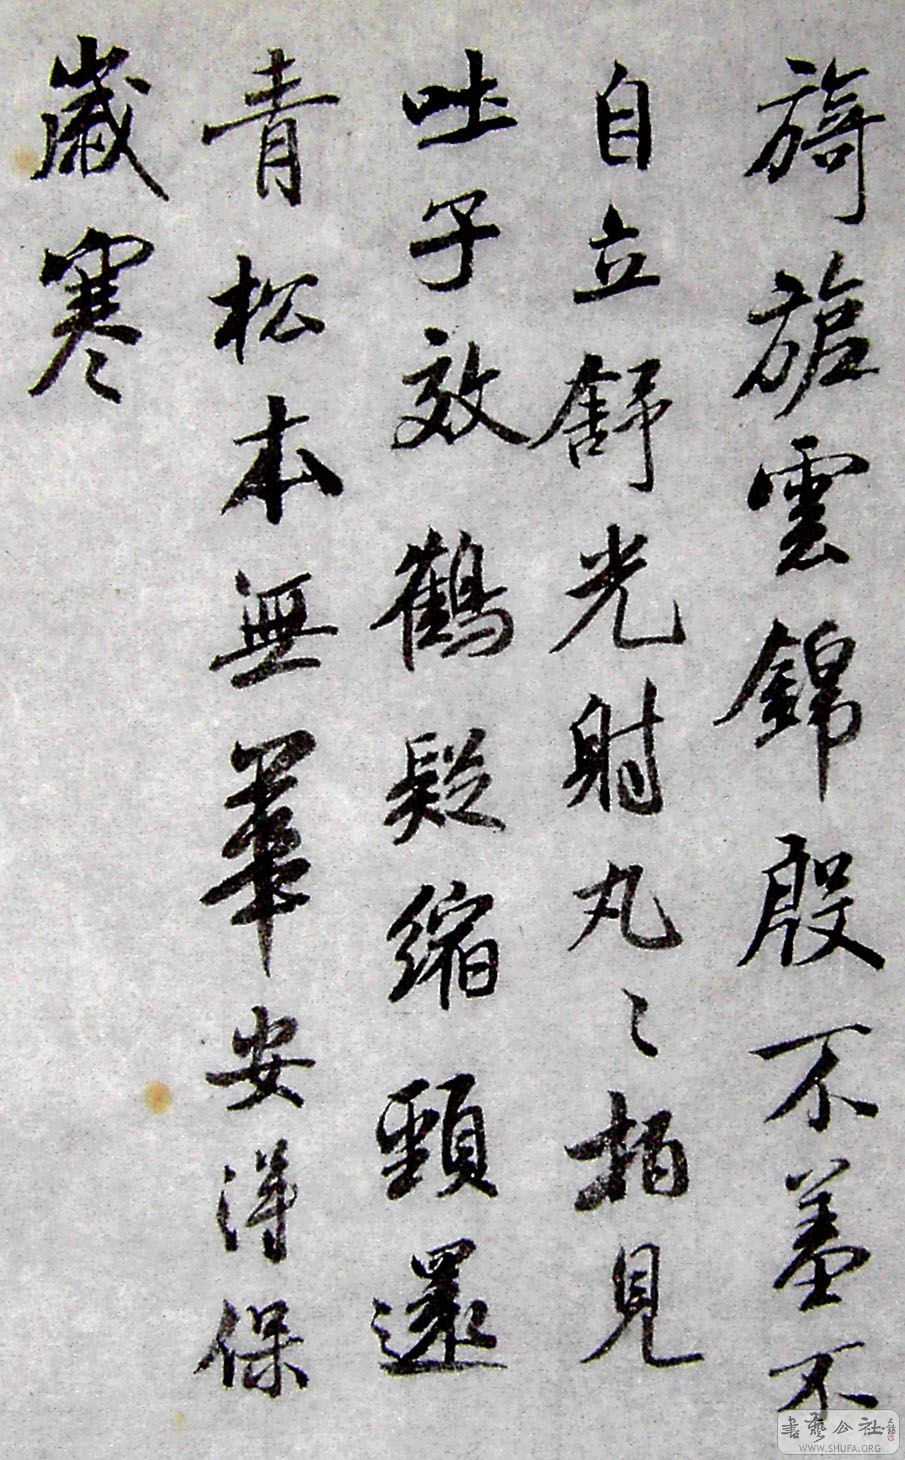 旖旎雲錦殷不羞不
自立舒光射丸〻柏見
吐子效鶴疑縮頸還
青松本無華安得保
歲寒
書藝公社
WWW.SHUFA.ORG